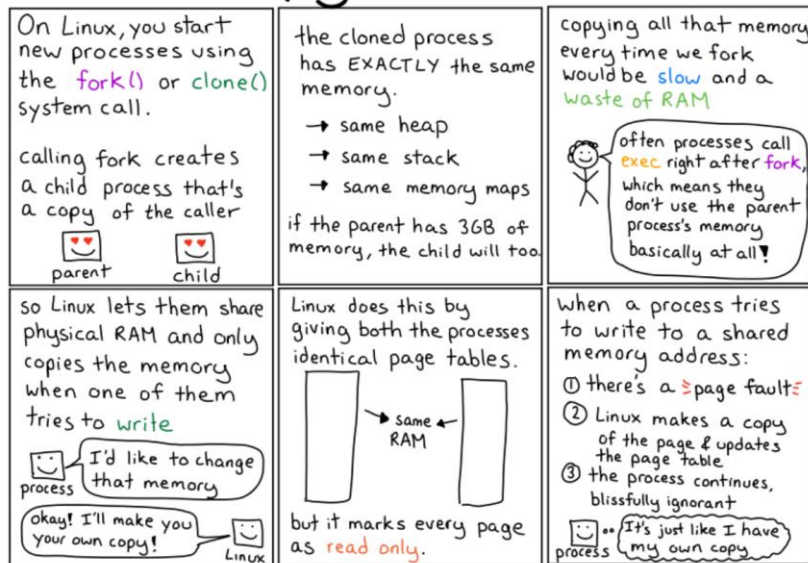 On Linux, you start
new processes using
the fork() or clone()
system call.
calling fork creates
a child process that's
a copy of the caller
parent
child
the cloned process
has EXACTLY the same
memory.
→ same heap
→ same stack
→ same memory maps
if the parent has 3GB of
memory, the child will too.
copying all that memory
every time we fork
would be slow and a
waste of RAM
often processes call
exec right after fork,
which means they
don't use the parent
process's memory
basically at all!
so Linux lets them share
physical RAM and only
copies the memory
when one of them
tries to write
I'd like to change
that memory
process
okay! I'll make you
your own copy!
Linux
Linux does this by
giving both the processes
identical page tables.
same
RAM
but it marks every page
as read only.
when a process tries
to write to a shared
memory address:
① there's a page fault
② Linux makes a copy
of the page & updates
the page table
③ the process continues,
blissfully ignorant
It's just like I have
my own copy
process